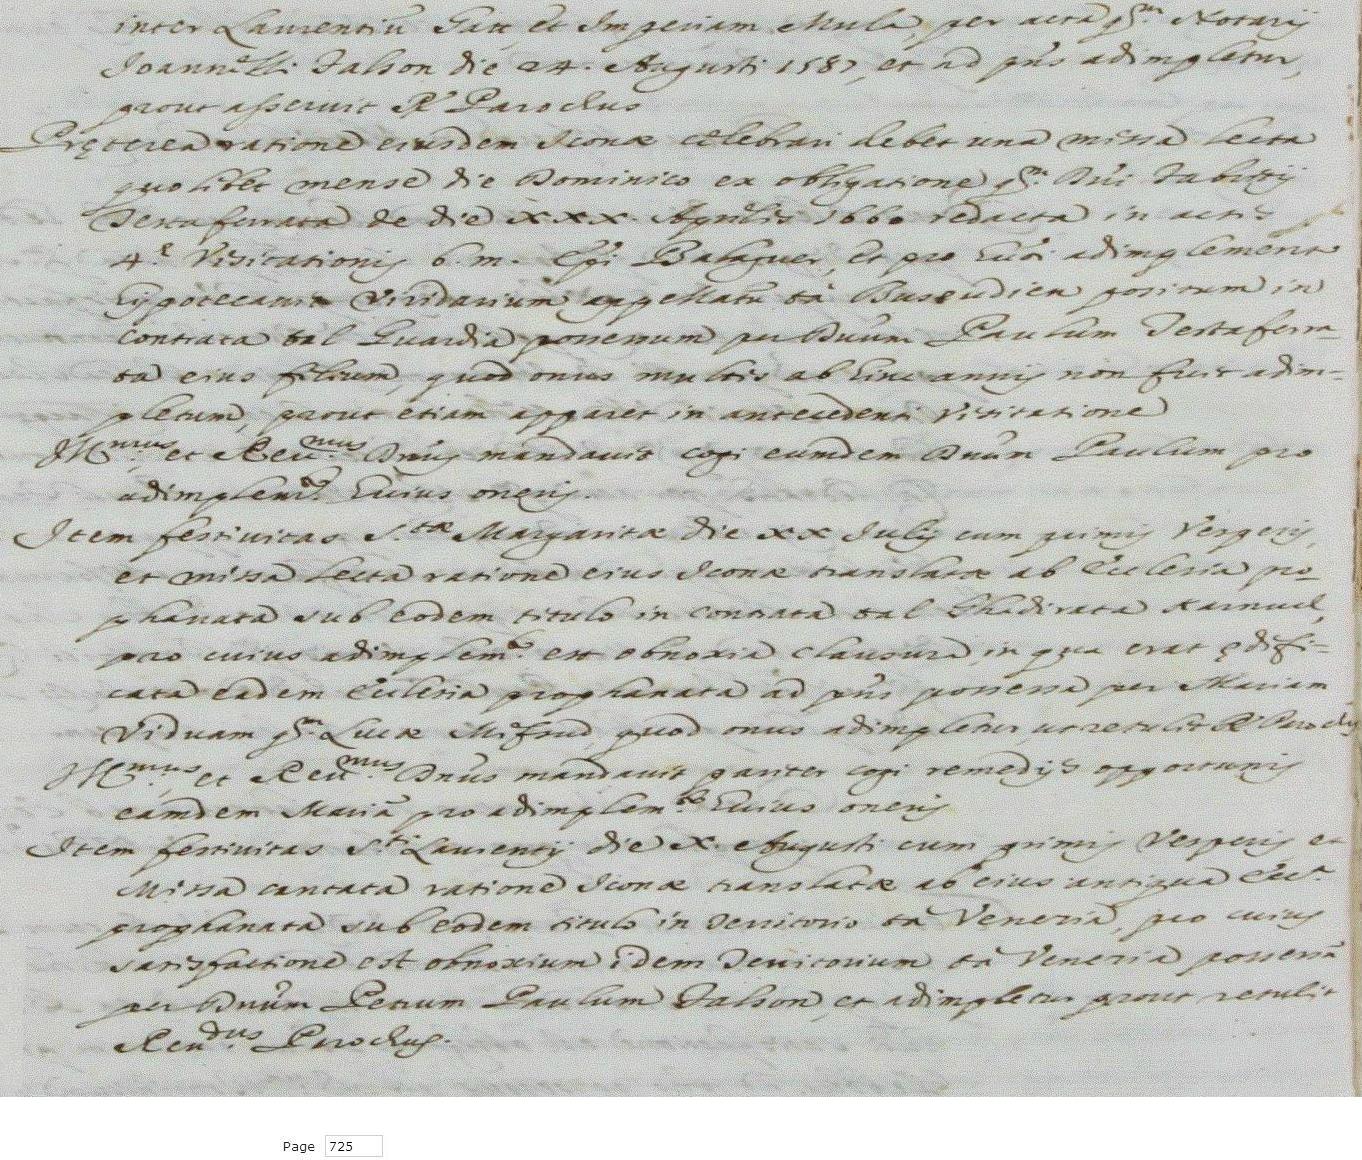 inter Laurentiũ Gatt, et Imperiam Mula, per acta qm Notarij
Joannelli Falson die 24. Augusti 1587, et ad pñs adimpletur,
prout asseruit R. Parochus
Pręterea ratione eiusdem Iconæ celebrari debet una missa lecta
quolibet mense die Dominico ex obligatione qm Dñi Fabritij
Testaferrata de die XXX. Aprilis 1660 redacta in actis
4æ Visitationis b. m. Epi Balaguer, et pro huiõi adimplemento
hypotecavit viridarium appellatũ ta Buseudien positum in
contrata tal Guardia possessum per Dñum Paulum Testaferra-
ta eius filium, quod onus multis ab hinc annis non fuit adim=
pletum, prout etiam apparet in antecedenti visitatione
Illmus, et Reumus Dñus mandavit cogi eumdem Dñum Paulum pro
adimplemto huius oneris.
Item festivitas S.tæ Margaritæ die XX Julij cum primis Vesperis,
et missa lecta ratione eius Iconæ translatæ ab Ecclesia pro-
phanata sub eodem titulo in contrata tal Ghadirata Xarnuel,
pro cuius adimplemto est obnoxia clausura, in qua erat ędifi=
cata eadem Ecclesia prophanata ad pñs possessa per Mariam
Viduam qm Lucæ Mifsud, quod onus adimpletur ut retulit R. Parochus
Illmus, et Reumus Dñus mandavit pariter cogi remedijs opportunis
eamdem Mariã pro adimplemto huius oneris
Item festivitas S.ti Laurentij die X. Augusti cum primis Vesperis et
Missa cantata ratione Iconæ translatæ ab eius antiqua Ecc.a
prophanata sub eodem titulo in Territorio ta Veneria, pro cuius
satisfactione est obnoxium idem Territorium ta Veneria possessũ
per Dñum Petrum Paulum Falson, et adimpletur prout retulit
Reudus Parochus.
Page 725